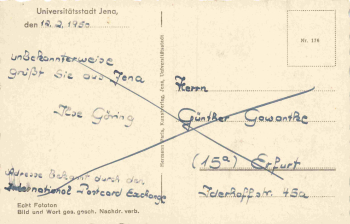 Universitätsstadt Jena,
den 12.2.1950
unbekannterweise
grüßt Sie aus Jena
Ilse Göring
Adresse bekannt durch den
International Postcard Exchange
Echt Fototon
Bild und Wort ges. gesch. Nachdr. verb.
Jena, Universitätsstadt
Nr. 176
Herrn
Günther Gawantke
(15a) Erfurt
Iderhoffstr. 45a